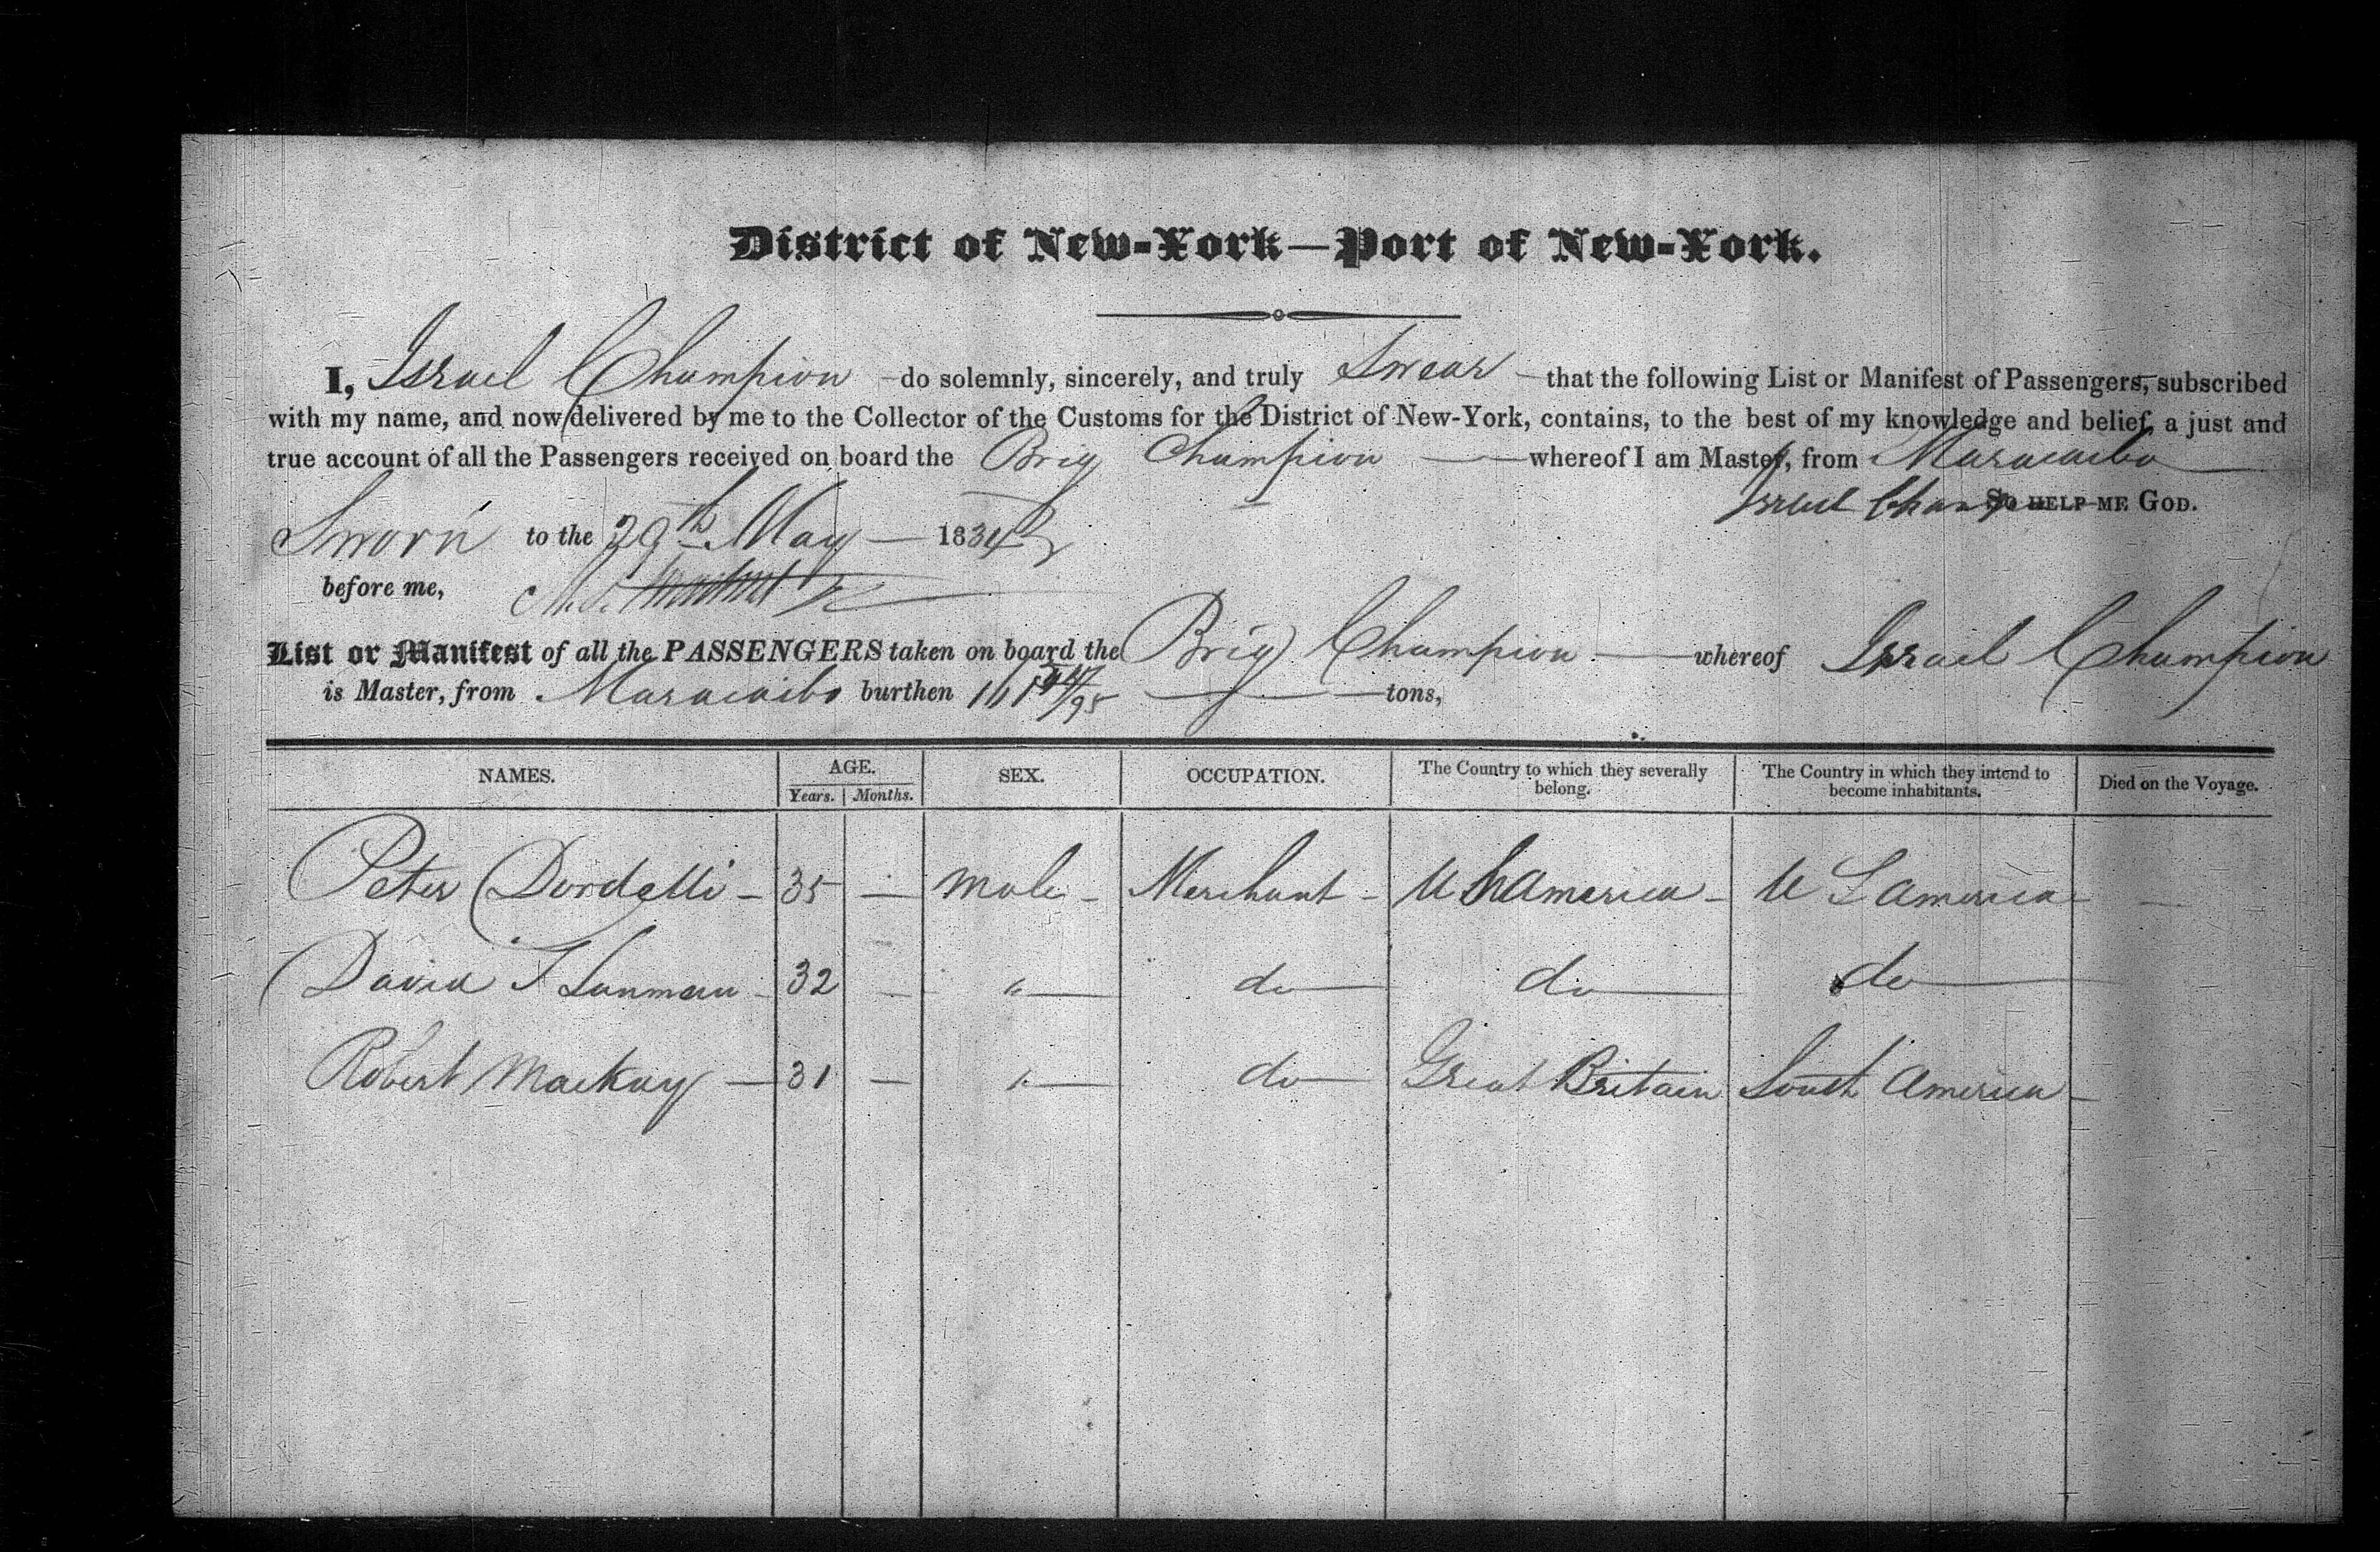 District of New-York—Port of New-York.
I, Israel Champion do solemnly, sincerely, and truly Swear that the following List or Manifest of Passengers, subscribed
with my name, and now delivered by me to the Collector of the Customs for the District of New-York, contains, to the best of my knowledge and belief, a just and
true account of all the Passengers received on board the Brig Champion whereof I am Master, from Maracaibo
Israel Champion So HELP ME GOD.
Sworn to the 29th May 1834
before me,
List or Manifest of all the PASSENGERS taken on board the Brig Champion whereof Israel Champion
is Master, from Maracaibo burthen tons,
NAMES. AGE. SEX. OCCUPATION. The Country to which they severally belong. The Country in which they intend to become inhabitants. Died on the Voyage.
Years. Months.
Peter Dordelli - 35 — male - Merchant - U S America - U S America —
David T Lanman - 32 — " do do do
Robert Mackay — 31 — " do Great Britain South America -